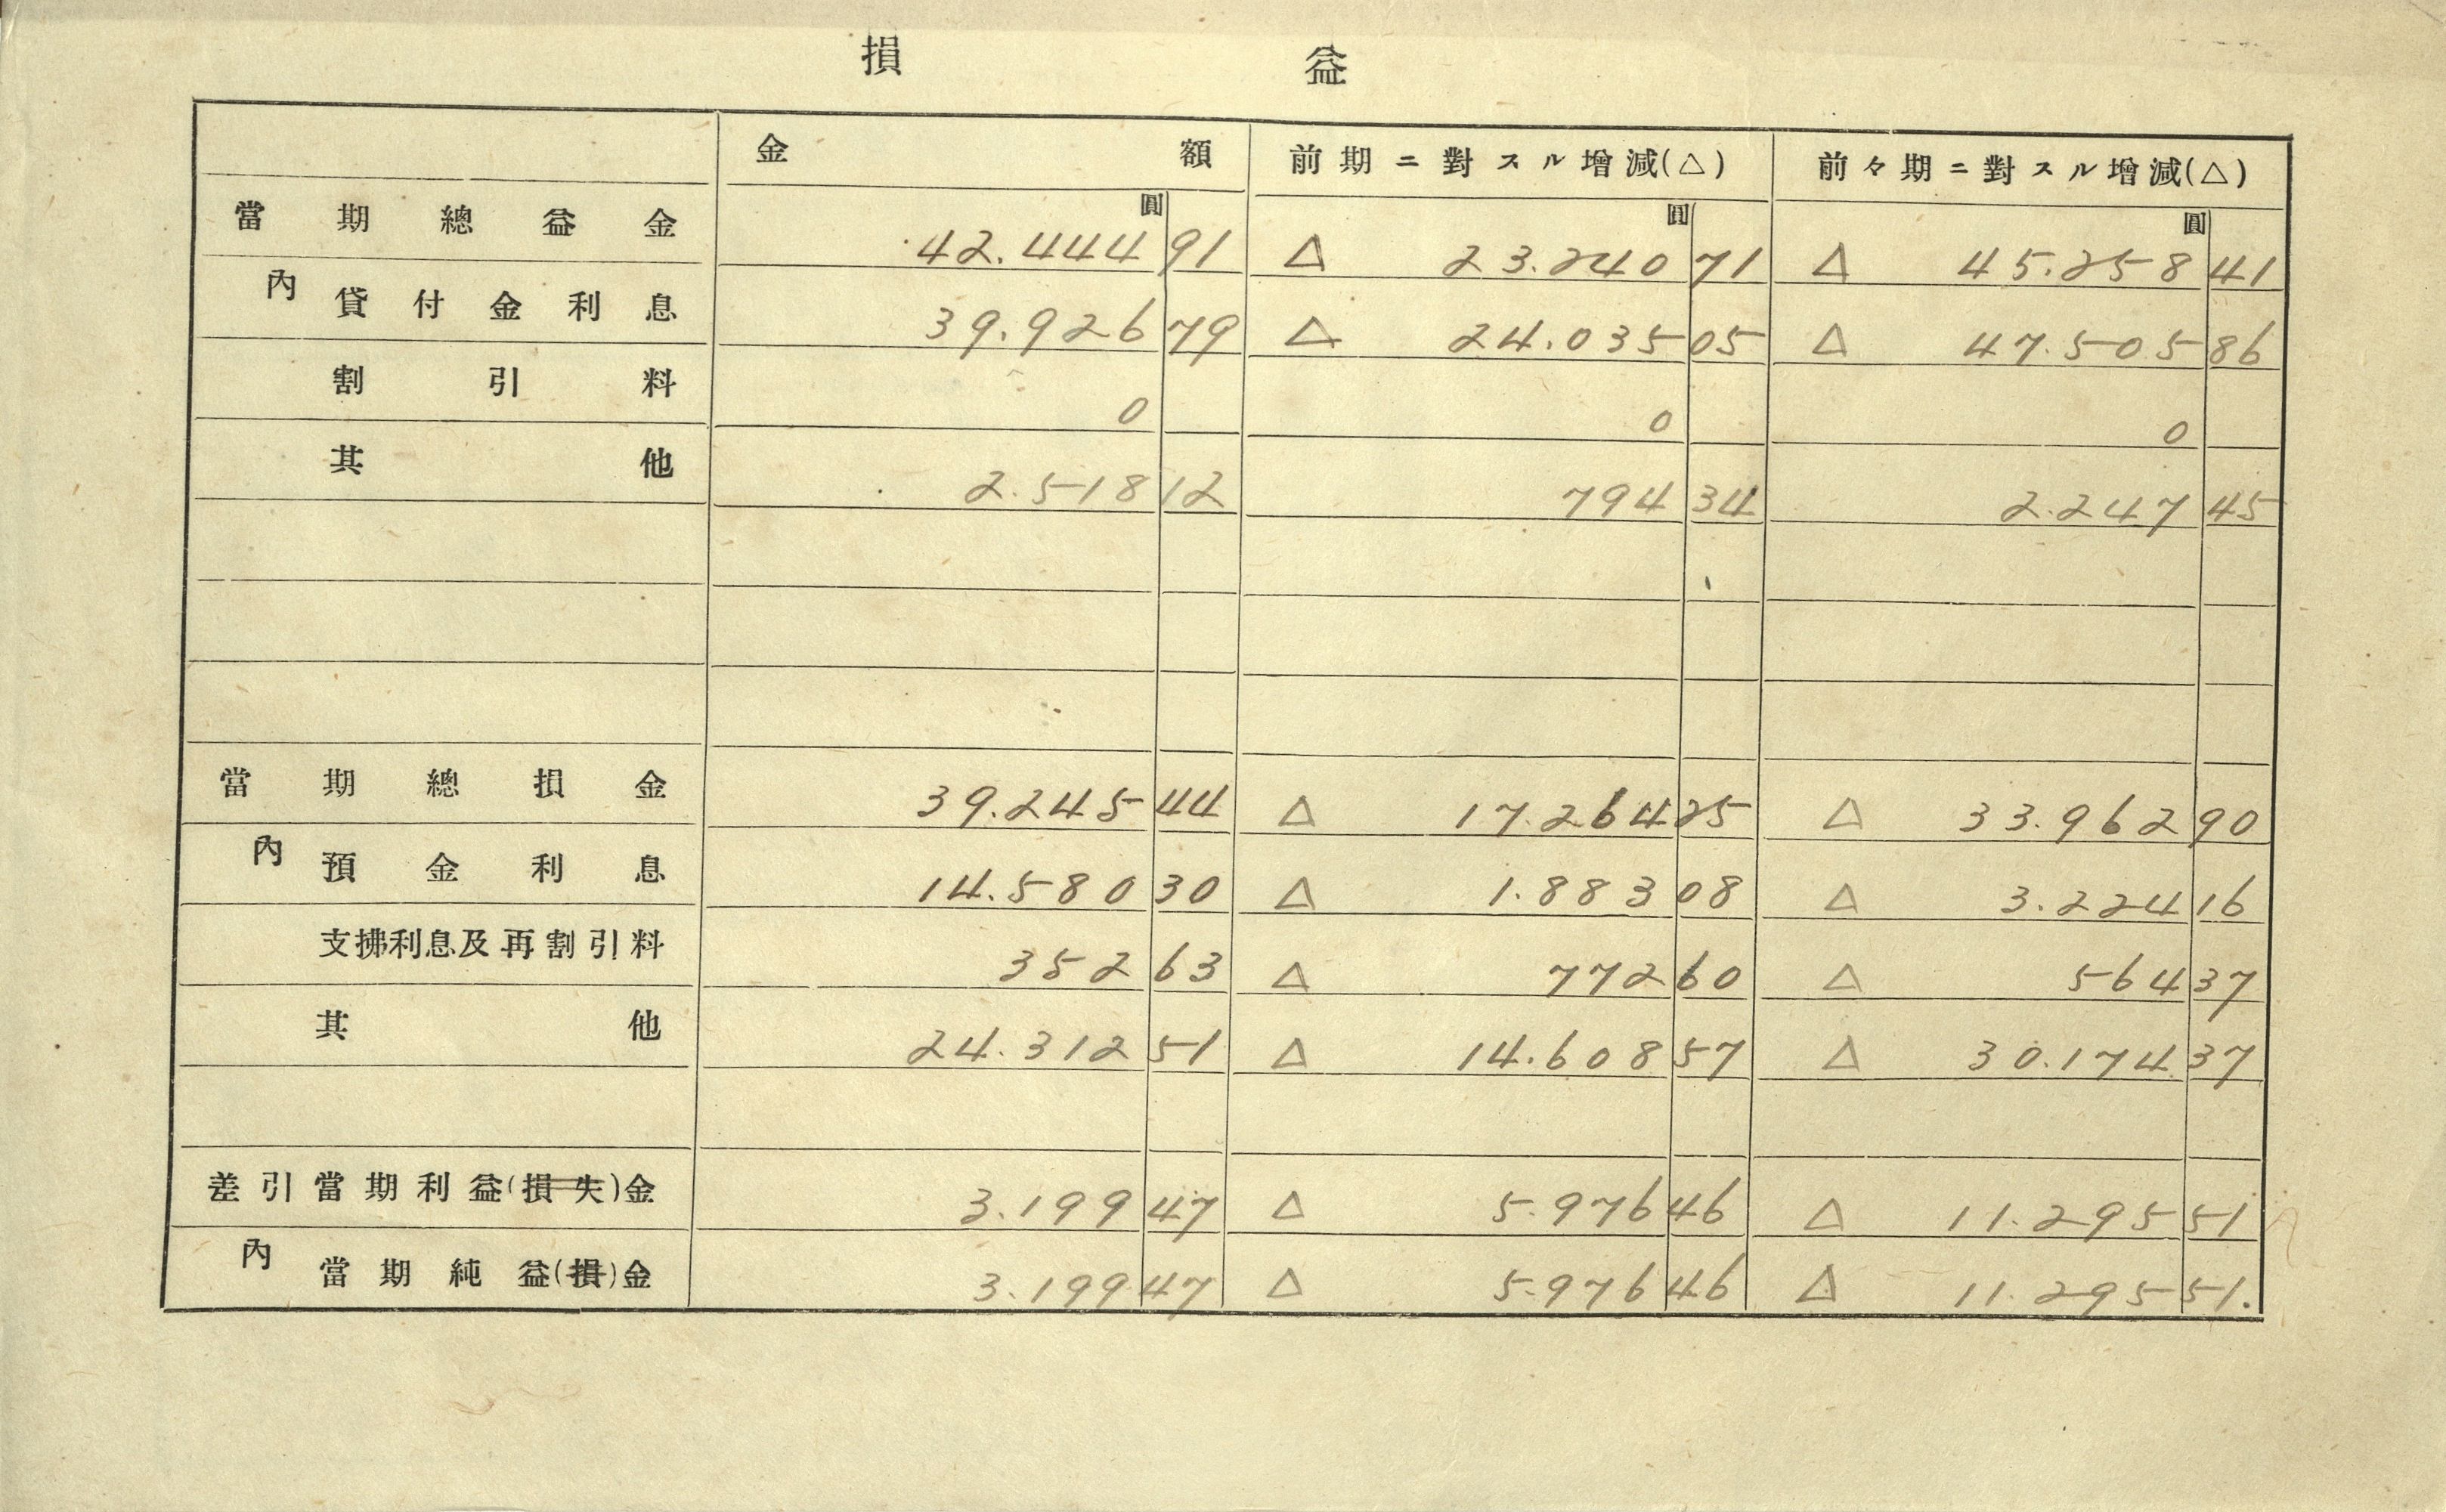 損益
金額 前期ニ對スル增減(△) 前々期ニ對スル增減(△)
圓 圓 圓
當期總益金 42.444 91 △ 23.240 71 △ 45.258 41
內 貸付金利息 39.926 79 △ 24.035 05 △ 47.505 86
割引料 0 0 0
其他 2.518 12 794 34 2.247 45
當期總損金 39.245 44 △ 17.264 25 △ 33.962 90
內 預金利息 14.580 30 △ 1.883 08 △ 3.224 16
支拂利息及再割引料 352 63 △ 772 60 △ 564 37
其他 24.312 51 △ 14.608 57 △ 30.174 37
差引當期利益(損失)金 3.199 47 △ 5.976 46 △ 11.295 51
內 當期純益(損)金 3.199 47 △ 5.976 46 △ 11.295 51.